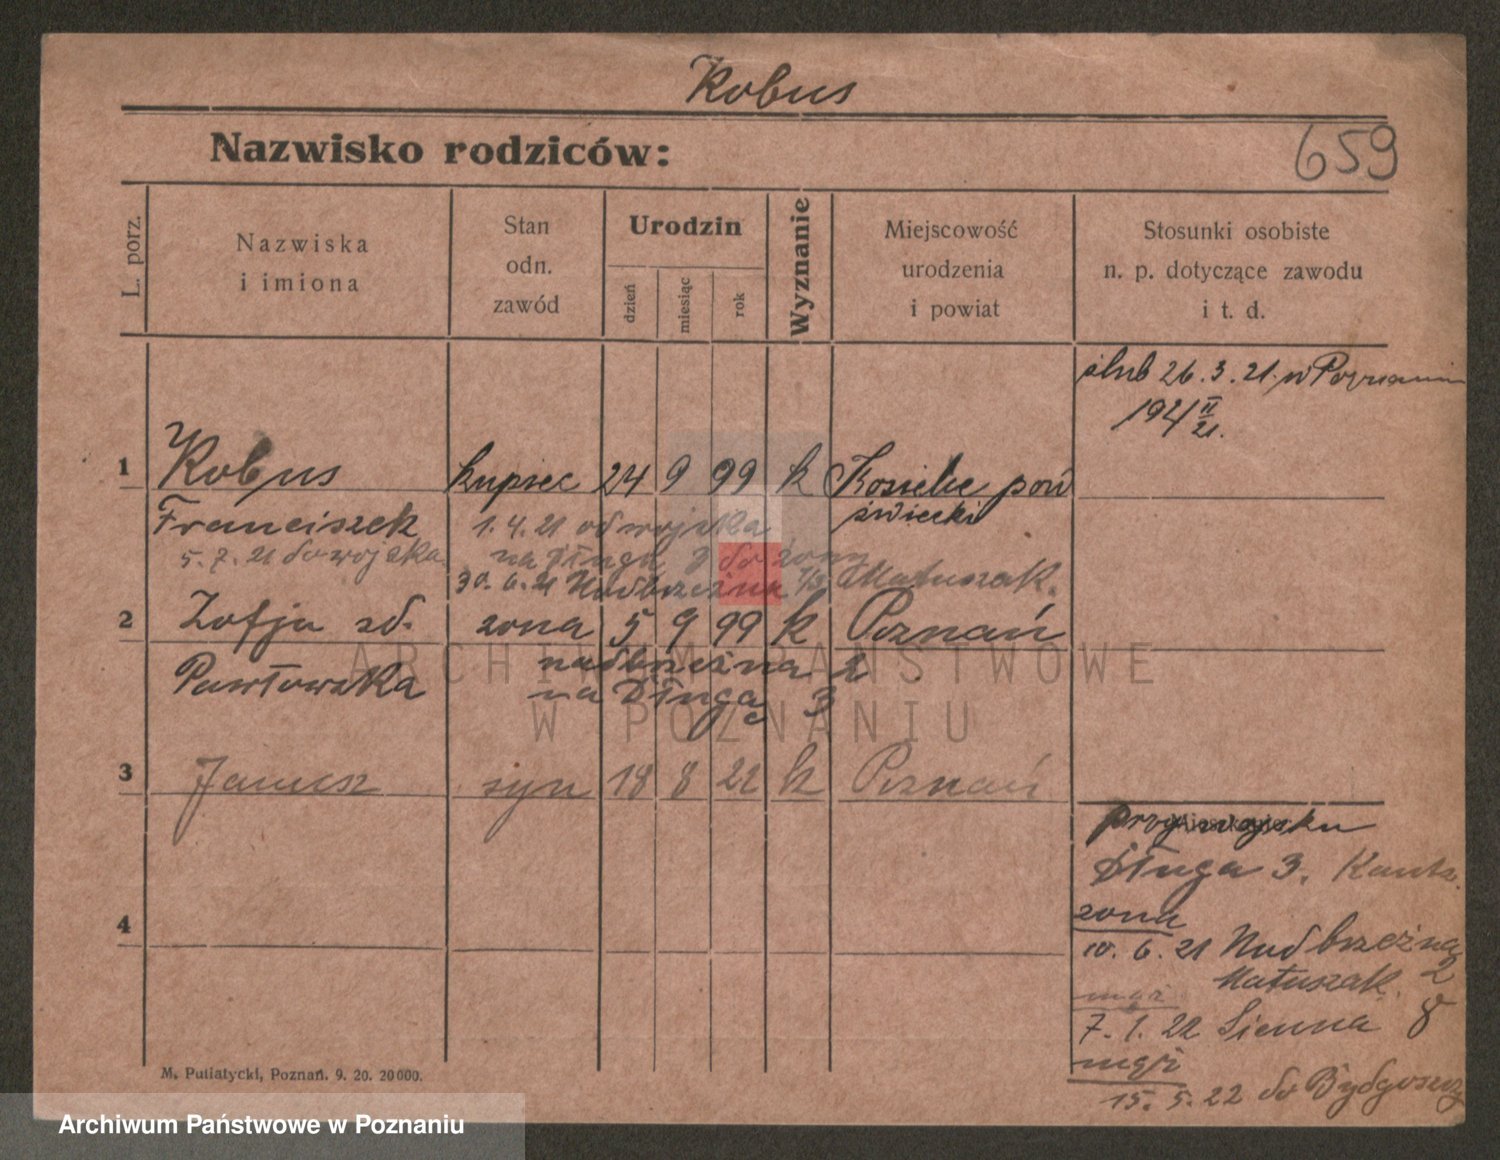 Kobus
Nazwisko rodziców:
659
L. porz.
Nazwiska
i imiona
Stan
odn.
zawód
Urodzin
dzień
miesiąc
rok
Wyznanie
Miejscowość
urodzenia
i powiat
Stosunki osobiste
n. p. dotyczące zawodu
i t. d.
ślub 26.3.21. w Poznaniu
1 Kobus kupiec 24 9 99 k pow
Franciszek świecki
1.4.21 od wojska
5.7.21 do wojska
na Długa do żony
30.6.21 Nadbrzeżna Matuszak.
2 Zofja zd. żona 5 9 99 k Poznań
Pawłowska
nadbrzeżna 2
na Długą 3
3 Janusz syn 18 8 22 k Poznań
przy wojsku
Długa 3.
4
żona
10.6.21 Nadbrzeżna 2
Matuszak.
mąż
7.1.22 Sienna 8
mąż
15.5.22 do Bydgoszczy
M. Putiatycki, Poznań. 9. 20. 20000.
ARCHIWUM PAŃSTWOWE
W POZNANIU
Archiwum Państwowe w Poznaniu